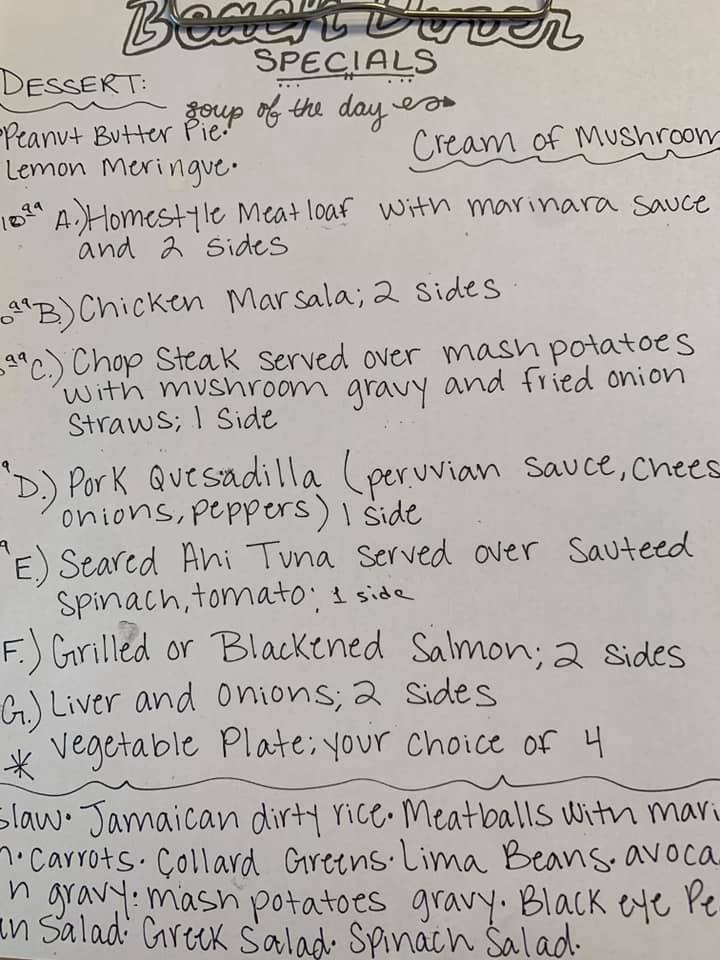 Beach Diner
SPECIALS
DESSERT:
soup of the day
Peanut Butter Pie.
Cream of Mushroom
Lemon Meringue.
10.99 A.) Homestyle Meatloaf with marinara sauce
and 2 sides
99 B.) Chicken Marsala; 2 sides
99 C.) Chop Steak served over mash potatoes
with mushroom gravy and fried onion
straws; 1 side
D.) Pork Quesadilla (peruvian sauce, chees
onions, peppers) 1 side
E.) Seared Ahi Tuna served over sauteed
spinach, tomato; 1 side
F.) Grilled or Blackened Salmon; 2 sides
G.) Liver and onions; 2 sides
* Vegetable Plate; your choice of 4
slaw. Jamaican dirty rice. Meatballs with mari
. Carrots. Collard Greens. Lima Beans. avoca
n gravy. mash potatoes gravy. Black eye Pe
Salad. Greek Salad. Spinach Salad.